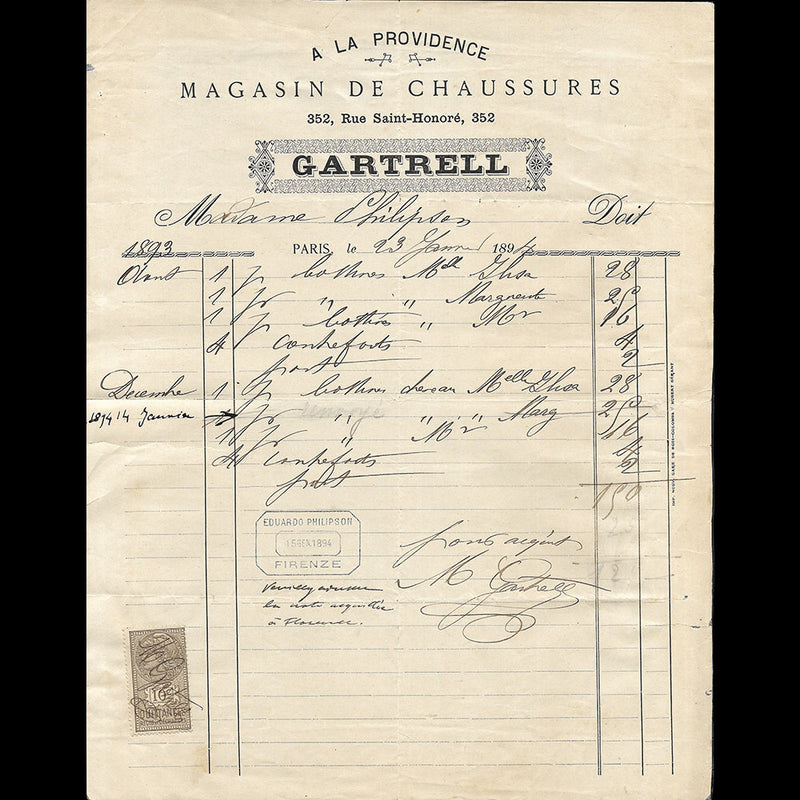 A LA PROVIDENCE
MAGASIN DE CHAUSSURES
352, Rue Saint-Honoré, 352
GARTRELL
Madame Philipson Doit
1893 PARIS, le 23 Janvier 1894
Août 1 p bottines Mlle Elisa 28
1 p " " Marguerite 25
1 p bottines " Mr 16
4 contreforts 4
port 2
Decembre 1 p bottines Melle Elisa 28
1894 14 Janvier 1 p " " Marg 25
1 p " Mr 16
4 contreforts 4
port 2
150
EDUARDO PHILIPSON
15 GEN 1894
FIRENZE
pour acquit
M Gartrell
la note acquittée
à Florence.
10c
QUITTANCES